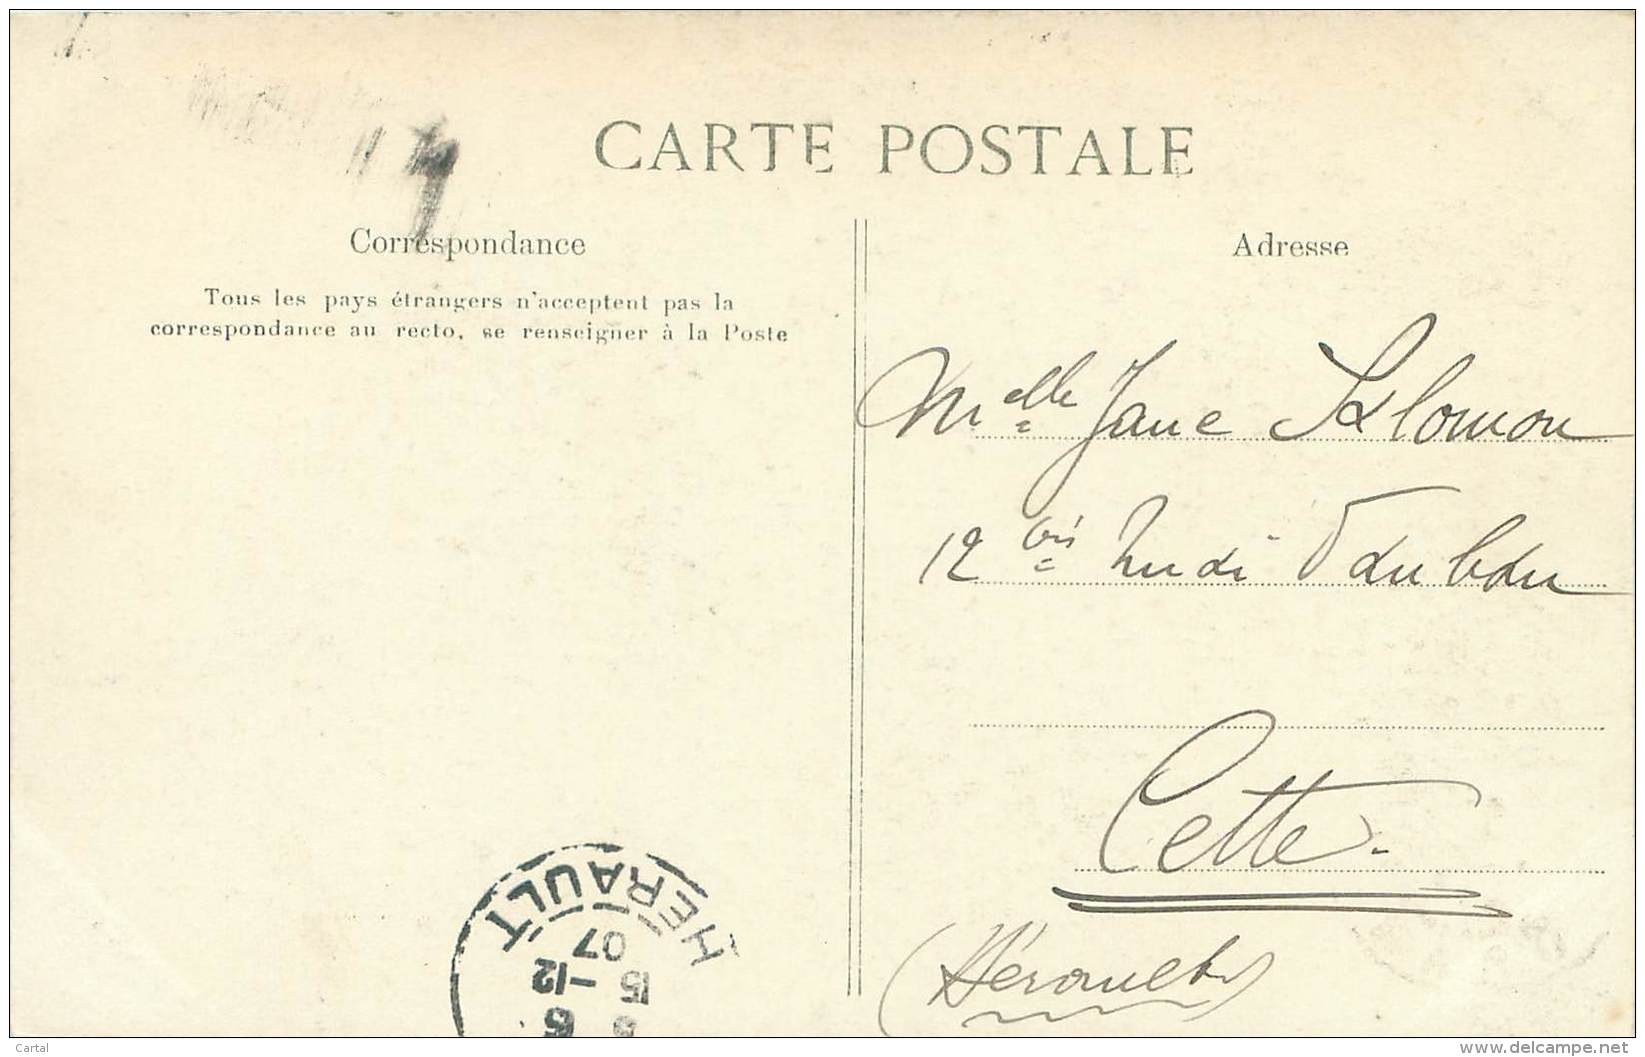 CARTE POSTALE
Correspondance
Tous les pays étrangers n'acceptent pas la
correspondance au recto, se renseigner à la Poste
Adresse
Melle Jane Salomon
12 bis
Cette.
(Hérault)
HÉRAULT
07
5 -12
6
Cartal
www.delcampe.net